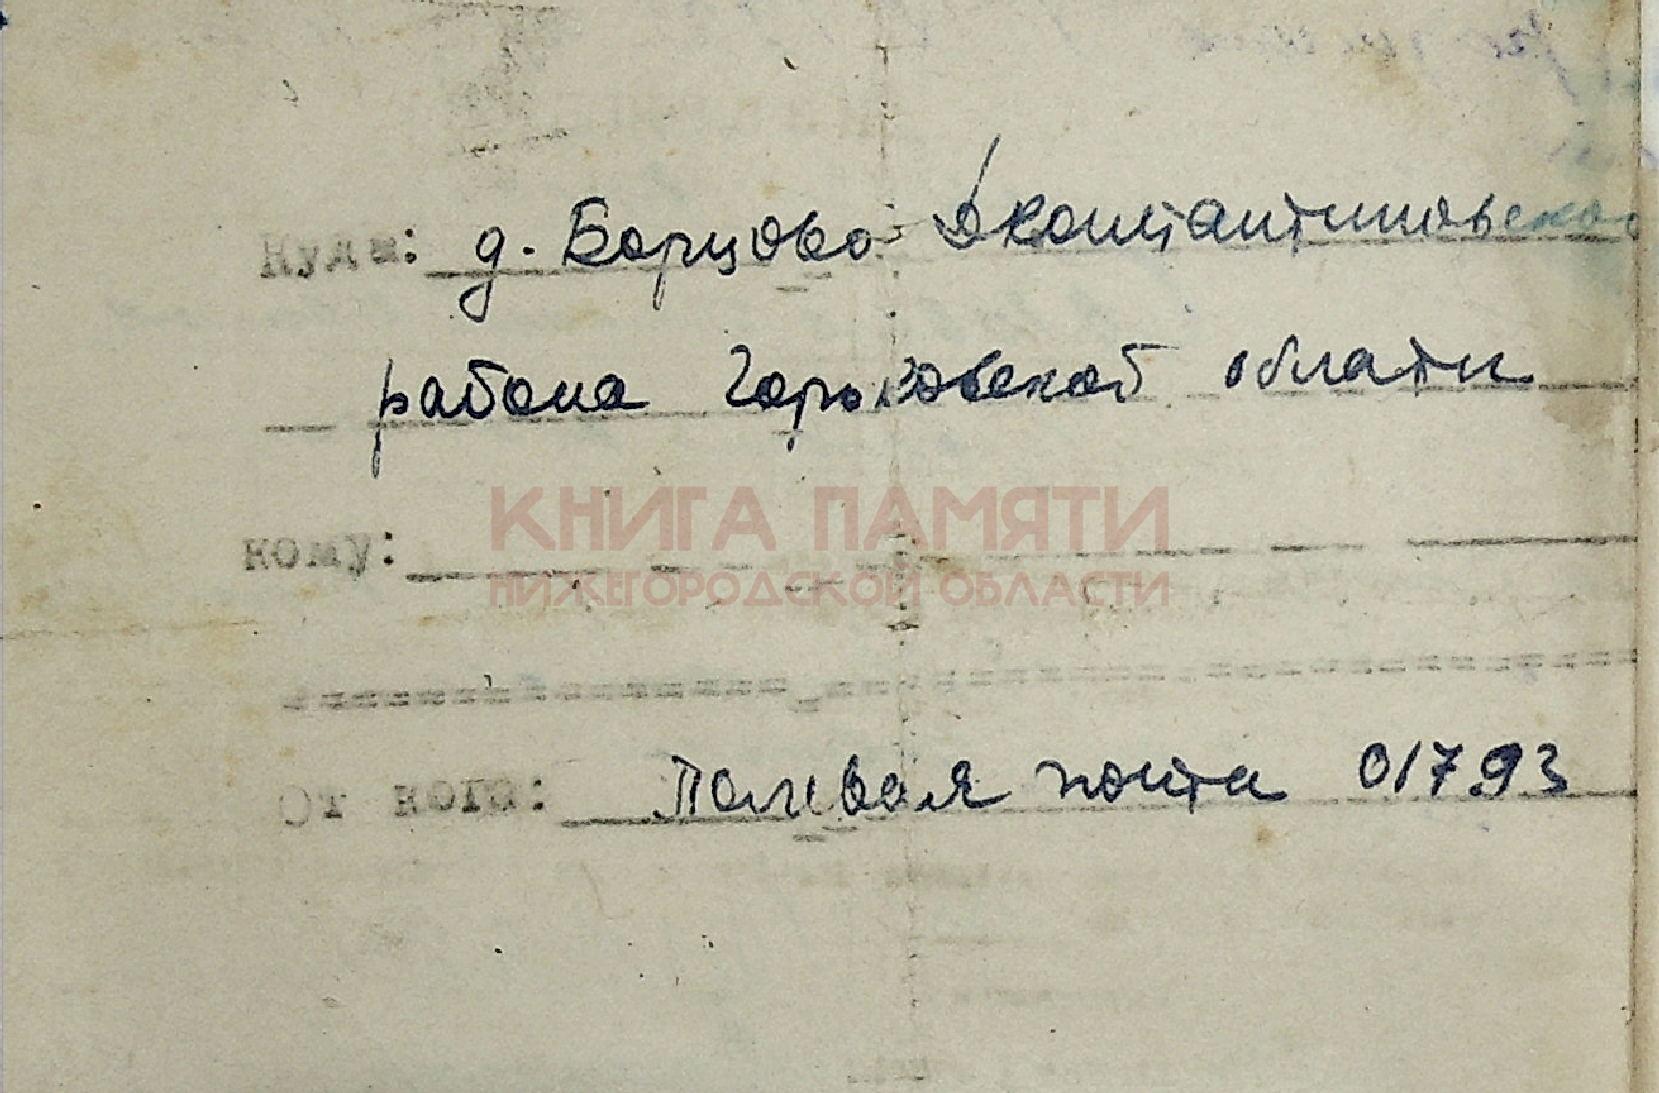 Куда: д. Борцово Дконстантиновского
района Горьковской области
кому:
КНИГА ПАМЯТИ
НИЖЕГОРОДСКОЙ ОБЛАСТИ
От кого: Полевая почта 01793